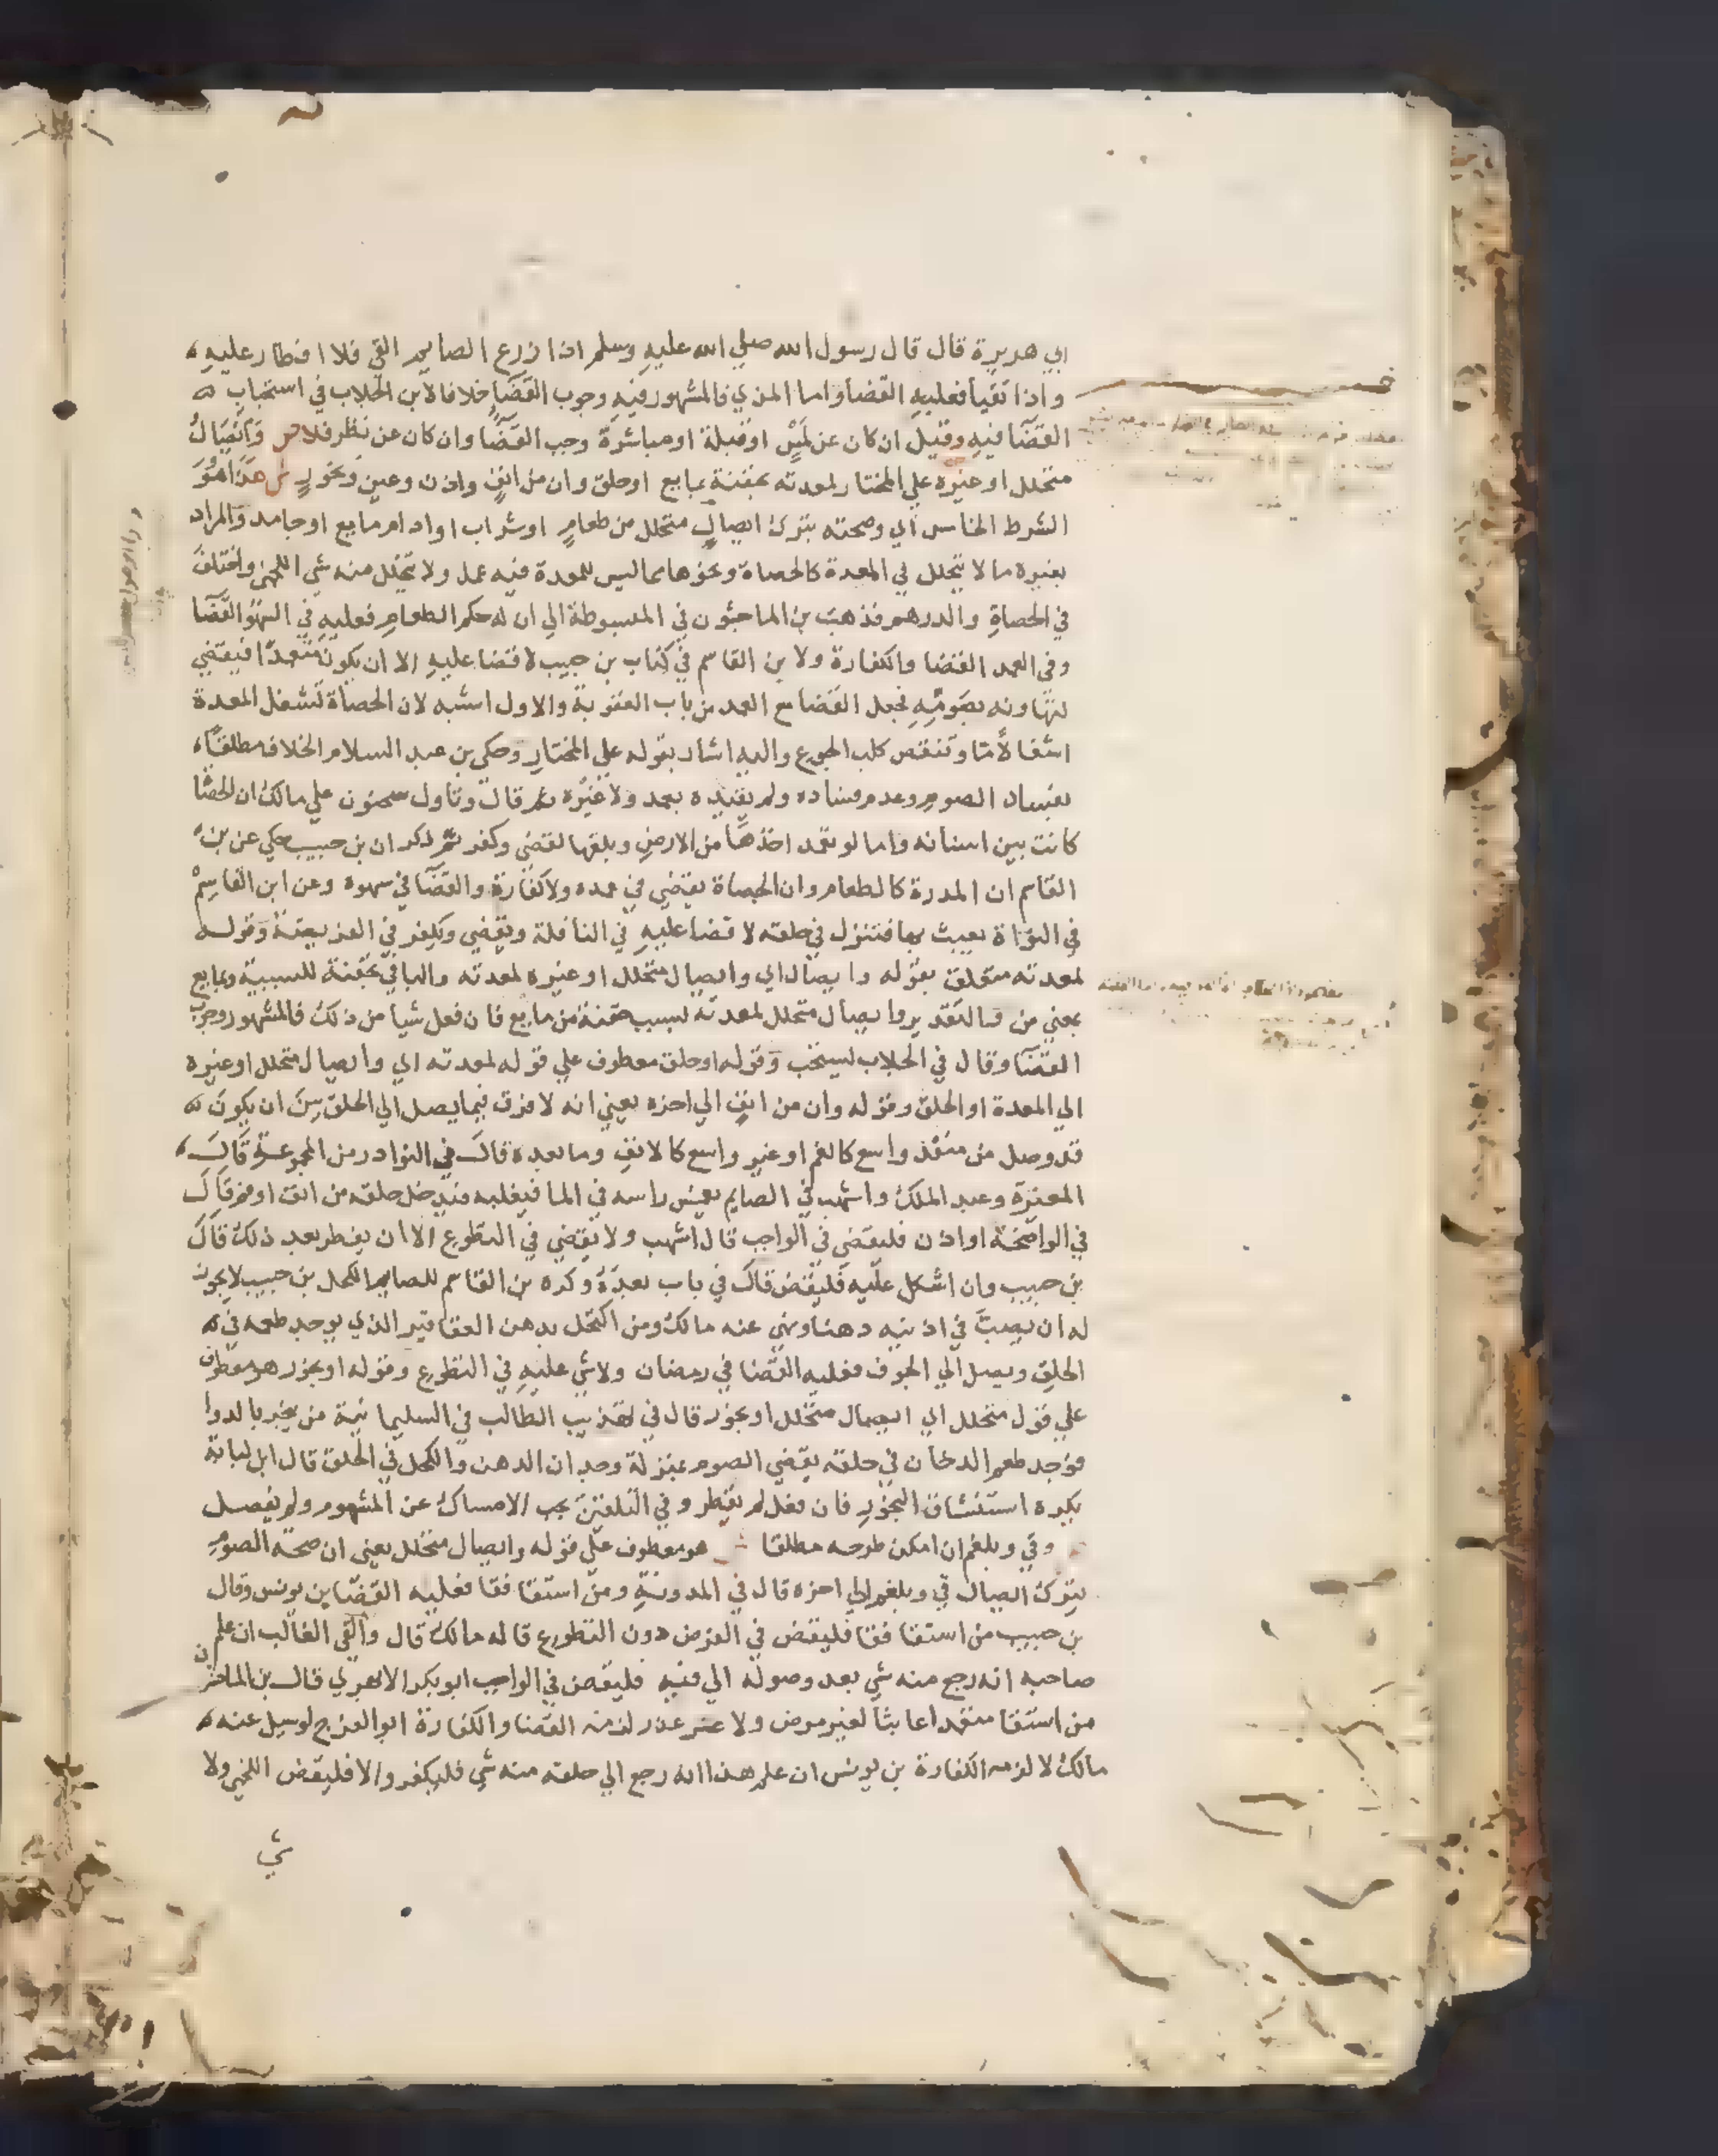 ابي هريرة قال قال رسول الله صلي الله عليه وسلم اذا ذرع الصايم القي فلا افطار عليه
واذا تقيا فعليه القضا واما المذي فالمشهور فيه وجوب القضا خلافا لابن الجلاب في استحباب
القضا فيه وقيل ان كان عن لمس او قبلة او مباشرة وجب القضا وان كان عن نظر فلا ص وايصال
متحلل او غيره علي المختار لمعدته بحقنة بمايع او حلق وان من انف واذن وعين وبخور ش هذا هو
الشرط الخامس اي وصحته بترك ايصال متحلل من طعام او شراب او ادام مايع او جامد والمراد
بغيره ما لا يتحلل في المعدة كالحصاة ونحوها مما ليس للمعدة فيه عمل ولا يتحلل منه شي اللخمي واختلف
في الحصاة والدرهم فذهب بن الماجشون في المبسوطة الي ان له حكم الطعام فعليه في السهو القضا
وفي العمد القضا والكفارة ولا بن القاسم في كتاب بن حبيب لا قضا عليه الا ان يكون متعمدا فيقضي
لتهاونه بصومه فجعل القضا مع العمد من باب العقوبة والاول اشبه لان الحصاة تشغل المعدة
اشغالا ما وتنقص كلب الجوع واليه اشار بقوله علي المختار وحكي بن عبد السلام الخلاف مطلقا
بفساد الصوم وعدم فساده ولم يقيده بعمد ولا غيره ثم قال وتاول سحنون علي مالك ان الحصا
كانت بين اسنانه واما لو تعمد اخذها من الارض وبلعها لقضي وكفر ثم ذكر ان بن حبيب حكي عن بن
القاسم ان المدرة كالطعام وان الحصاة يقضي في عمده ولا كفارة والقضا في سهوه وعن ابن القاسم
في النواة يعبث بها فتنزل في حلقه لا قضا عليه في النافلة ويقضي ويكفر في الفريضة وقوله
لمعدته متعلق بقوله وايصال اي وايصال متحلل او غيره لمعدته والبا في بحقنة للسببية وبمايع
بمعني من فالتقدير وايصال متحلل لمعدته بسبب حقنة من مايع فان فعل شيا من ذلك فالمشهور وجوب
القضا وقال في الجلاب يستحب وقوله او حلق معطوف علي قوله لمعدته اي وايصال متحلل او غيره
الي المعدة او الحلق وقوله وان من انف الي اخره يعني انه لا فرق فيما يصل الي الحلق بين ان يكون
قد وصل من منفذ واسع كالفم او غير واسع كالانف وما بعده قال في النوادر من المجموعة قال
المغيرة وعبد الملك واشهب في الصايم يغمس راسه في الما فيغلبه فيدخل حلقه من انف او فم قال
في الواضحة او اذن فليقضي في الواجب قال اشهب ولا يقضي في التطوع الا ان يفطر بعد ذلك قال
بن حبيب وان اشكل عليه فليقض قال في باب بعده وكره بن القاسم للصايم الكحل بن حبيب لا يجوز
له ان يصب في اذنيه دهنا ونهي عنه مالك ومن اكتحل بدهن العقاقير الذي يوجد طعمه في
الحلق ويصل الي الجوف فعليه القضا في رمضان ولا شي عليه في التطوع وقوله او بخور هو معطوف
علي قول متحلل اي ايصال متحلل او بخور قال في تهذيب الطالب في السليمانية من يبخر بالدوا
فوجد طعم الدخان في حلقه يقضي الصوم بمنزلة وجدان الدهن والكحل في الحلق قال ابن لبابة
يكره استنشاق البخور فان فعل لم يفطر وفي التلقين يجب الامساك عن المشهوم ولم يفصل
وقي وبلغم ان امكن طرحه مطلقا هو معطوف علي قوله وايصال متحلل يعني ان صحة الصوم
بترك ايصال قي وبلغم الي اخره قال في المدونة ومن استقا فقا فعليه القضا بن يونس وقال
بن حبيب من استقا فقا فليقض في الفرض دون التطوع قاله مالك قال والقي الغالب ان علم
صاحبه انه رجع منه شي بعد وصوله الي فيه فليقض في الواجب ابو بكر الابهري قال بن الماجشون
من استقا متعمدا عابثا لغير مرض ولا عذر لزمه القضا والكفارة ابو الفرج لو سيل عنه
مالك لالزمه الكفارة بن يونس ان علم هذا انه رجع الي حلقه منه شي فليكفر والا فليقض اللخمي ولا
شي